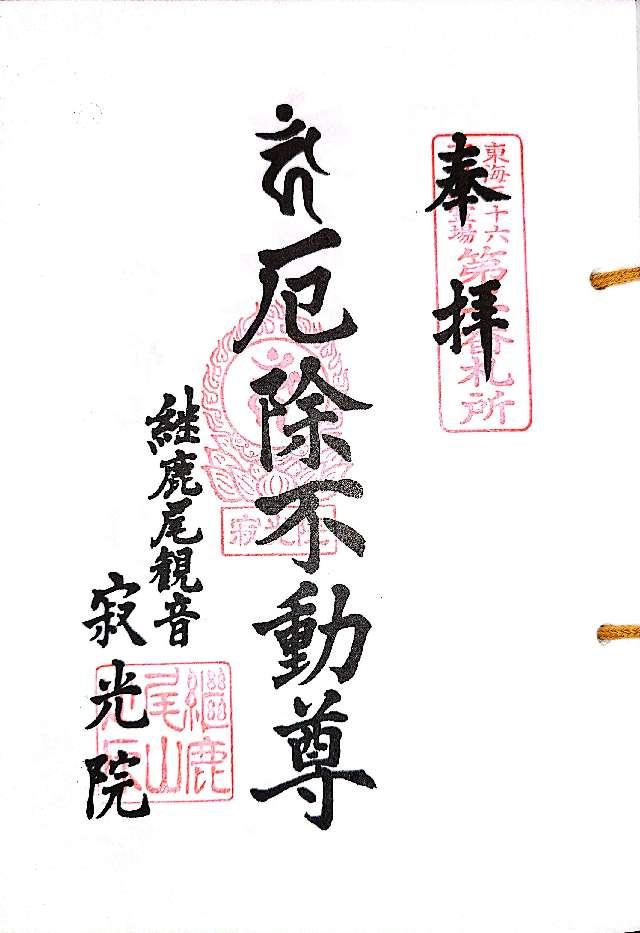 奉拝
東海三十六
第 番札所
厄除不動尊
寂光院
継鹿尾観音
寂光院
繼鹿
尾山